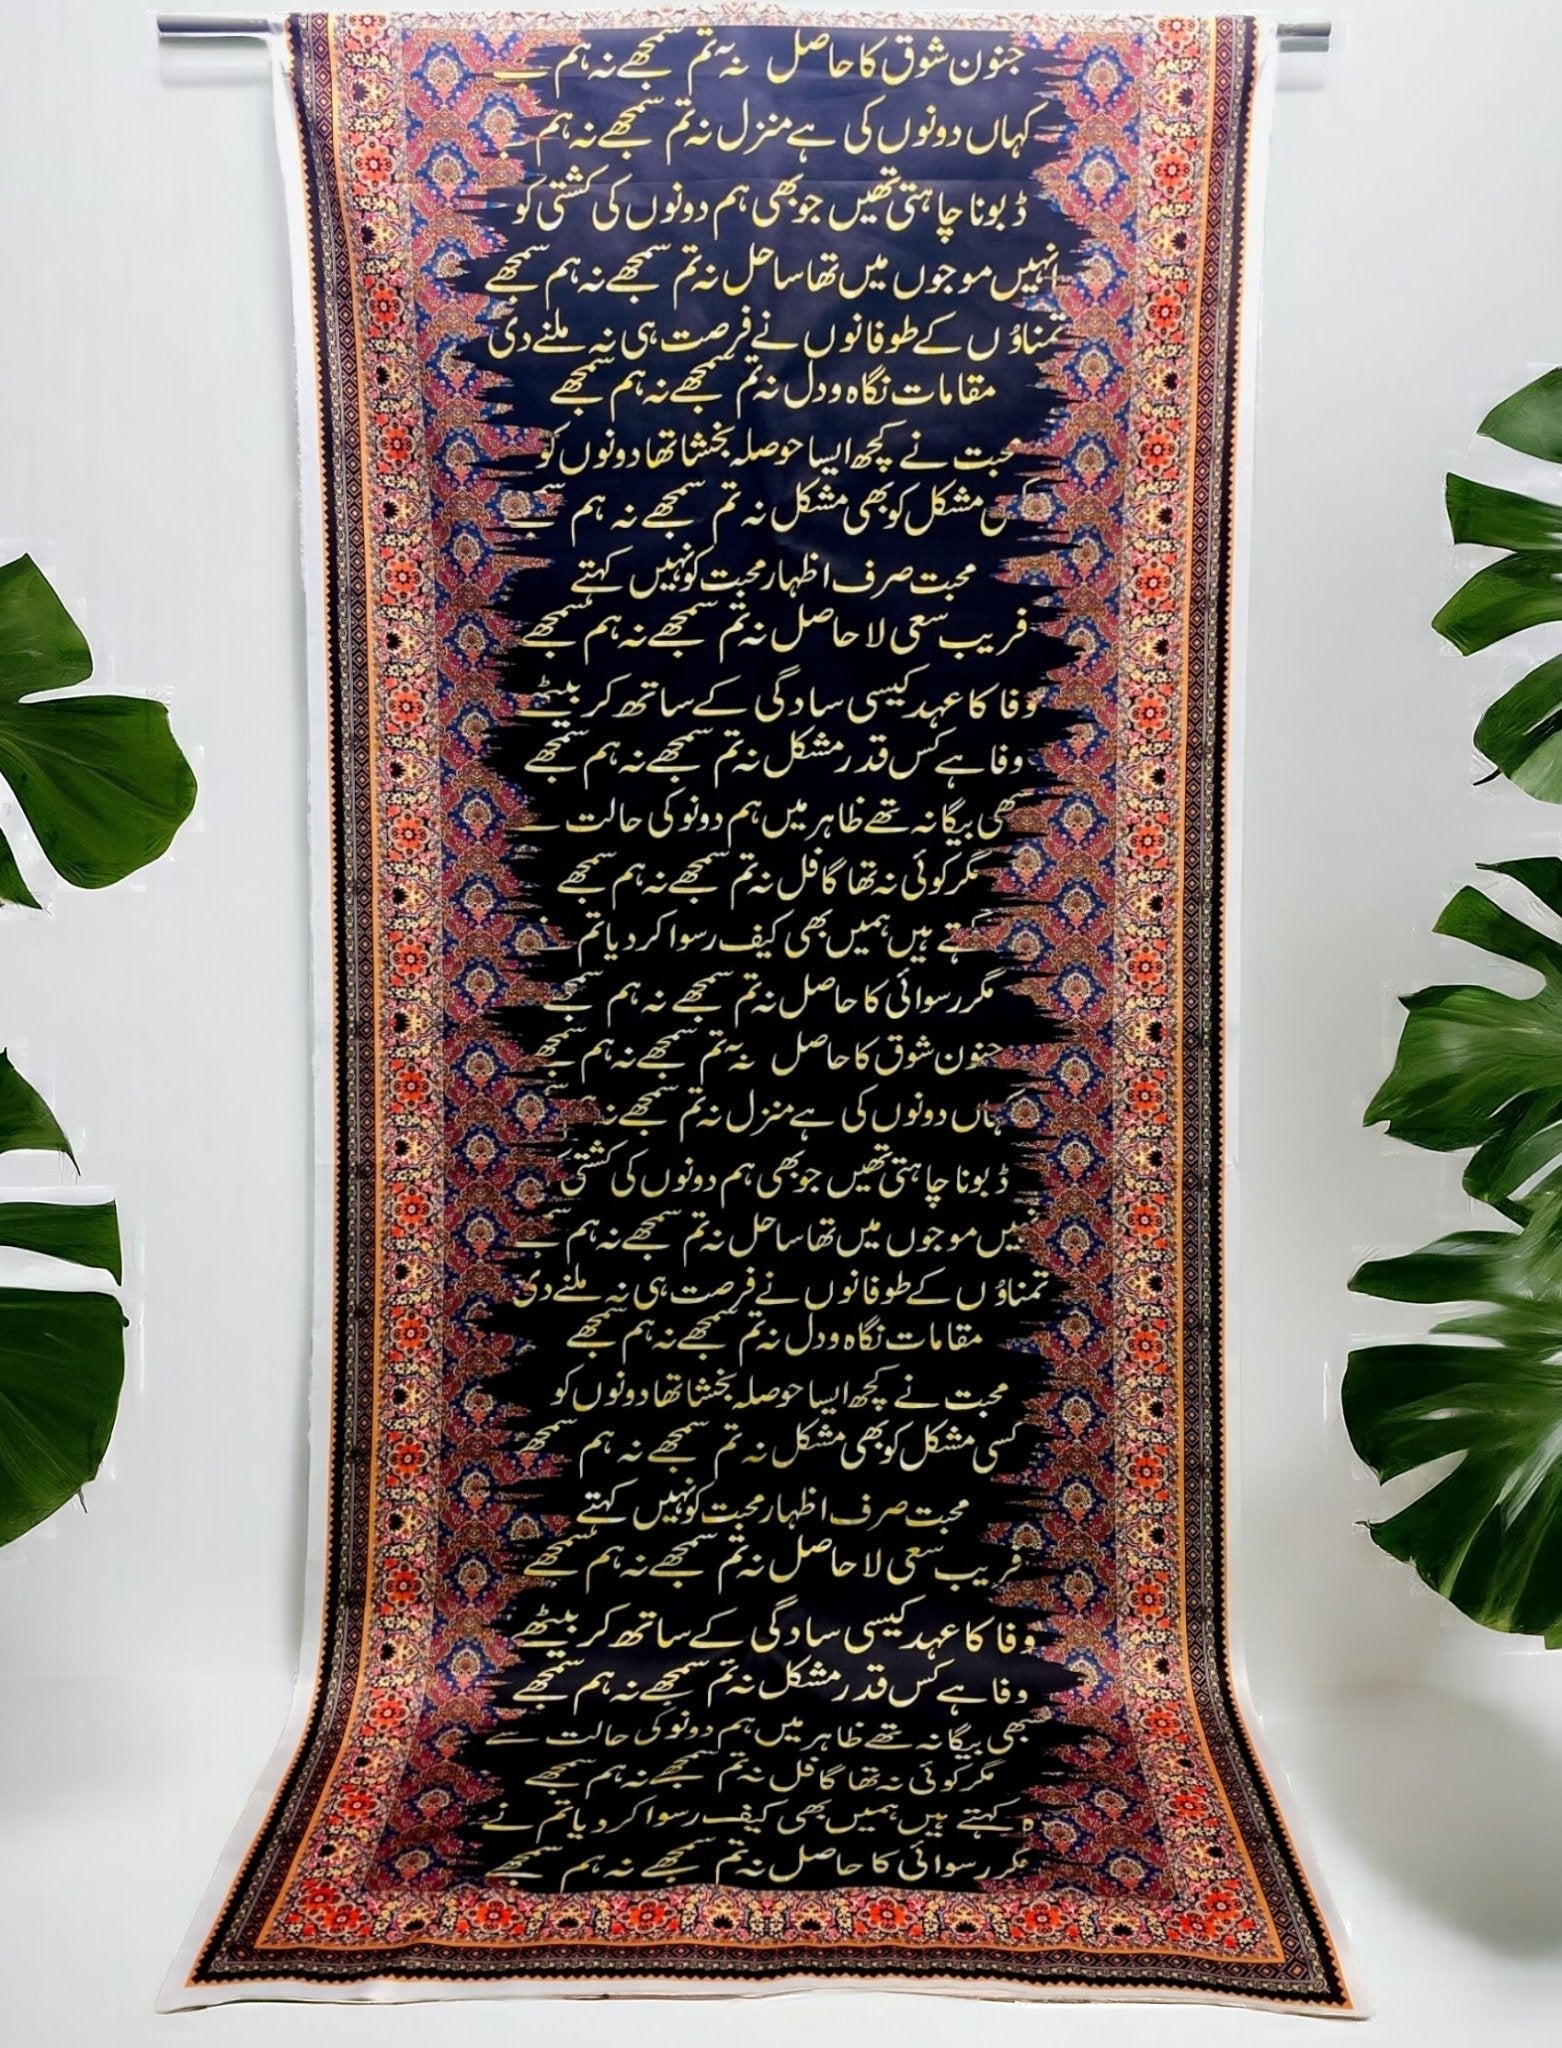 جنون شوق کا حاصل نہ تم سمجھے نہ ہم
کہاں دونوں کی ہے منزل نہ تم سمجھے نہ ہم
ڈبونا چاہتی تھیں جو بھی ہم دونوں کی کشتی کو
انہیں موجوں میں تھا ساحل نہ تم سمجھے نہ ہم سمجھے
تمناؤں کے طوفانوں نے فرصت ہی نہ ملنے دی
مقامات نگاہ و دل نہ تم سمجھے نہ ہم سمجھے
محبت نے کچھ ایسا حوصلہ بخشا تھا دونوں کو
مشکل کو بھی مشکل نہ تم سمجھے نہ ہم
محبت صرف اظہار محبت کو نہیں کہتے
فریب سعی لا حاصل نہ تم سمجھے نہ ہم سمجھے
وفا کا عہد کیسی سادگی کے ساتھ کر بیٹھے
وفا ہے کس قدر مشکل نہ تم سمجھے نہ ہم سمجھے
بیگانہ تھے ظاہر میں ہم دونو کی حالت سے
مگر کوئی نہ تھا گافل نہ تم سمجھے نہ ہم سمجھے
کہتے ہیں ہمیں بھی کیف رسوا کر دیا تم
مگر رسوائی کا حاصل نہ تم سمجھے نہ ہم سمجھے
جنون شوق کا حاصل نہ تم سمجھے نہ ہم سمجھے
کہاں دونوں کی ہے منزل نہ تم سمجھے نہ
ڈبونا چاہتی تھیں جو بھی ہم دونوں کی کشتی
انہیں موجوں میں تھا ساحل نہ تم سمجھے نہ ہم
تمناؤں کے طوفانوں نے فرصت ہی نہ ملنے دی
مقامات نگاہ و دل نہ تم سمجھے نہ ہم سمجھے
محبت نے کچھ ایسا حوصلہ بخشا تھا دونوں کو
کسی مشکل کو بھی مشکل نہ تم سمجھے نہ ہم سمجھے
محبت صرف اظہار محبت کو نہیں کہتے
فریب سعی لا حاصل نہ تم سمجھے نہ ہم سمجھے
وفا کا عہد کیسی سادگی کے ساتھ کر بیٹھے
وفا ہے کس قدر مشکل نہ تم سمجھے نہ ہم سمجھے
سبھی بیگانہ تھے ظاہر میں ہم دونو کی حالت سے
مگر کوئی نہ تھا گافل نہ تم سمجھے نہ ہم سمجھے
وہ کہتے ہیں ہمیں بھی کیف رسوا کر دیا تم نے
مگر رسوائی کا حاصل نہ تم سمجھے نہ ہم سمجھے